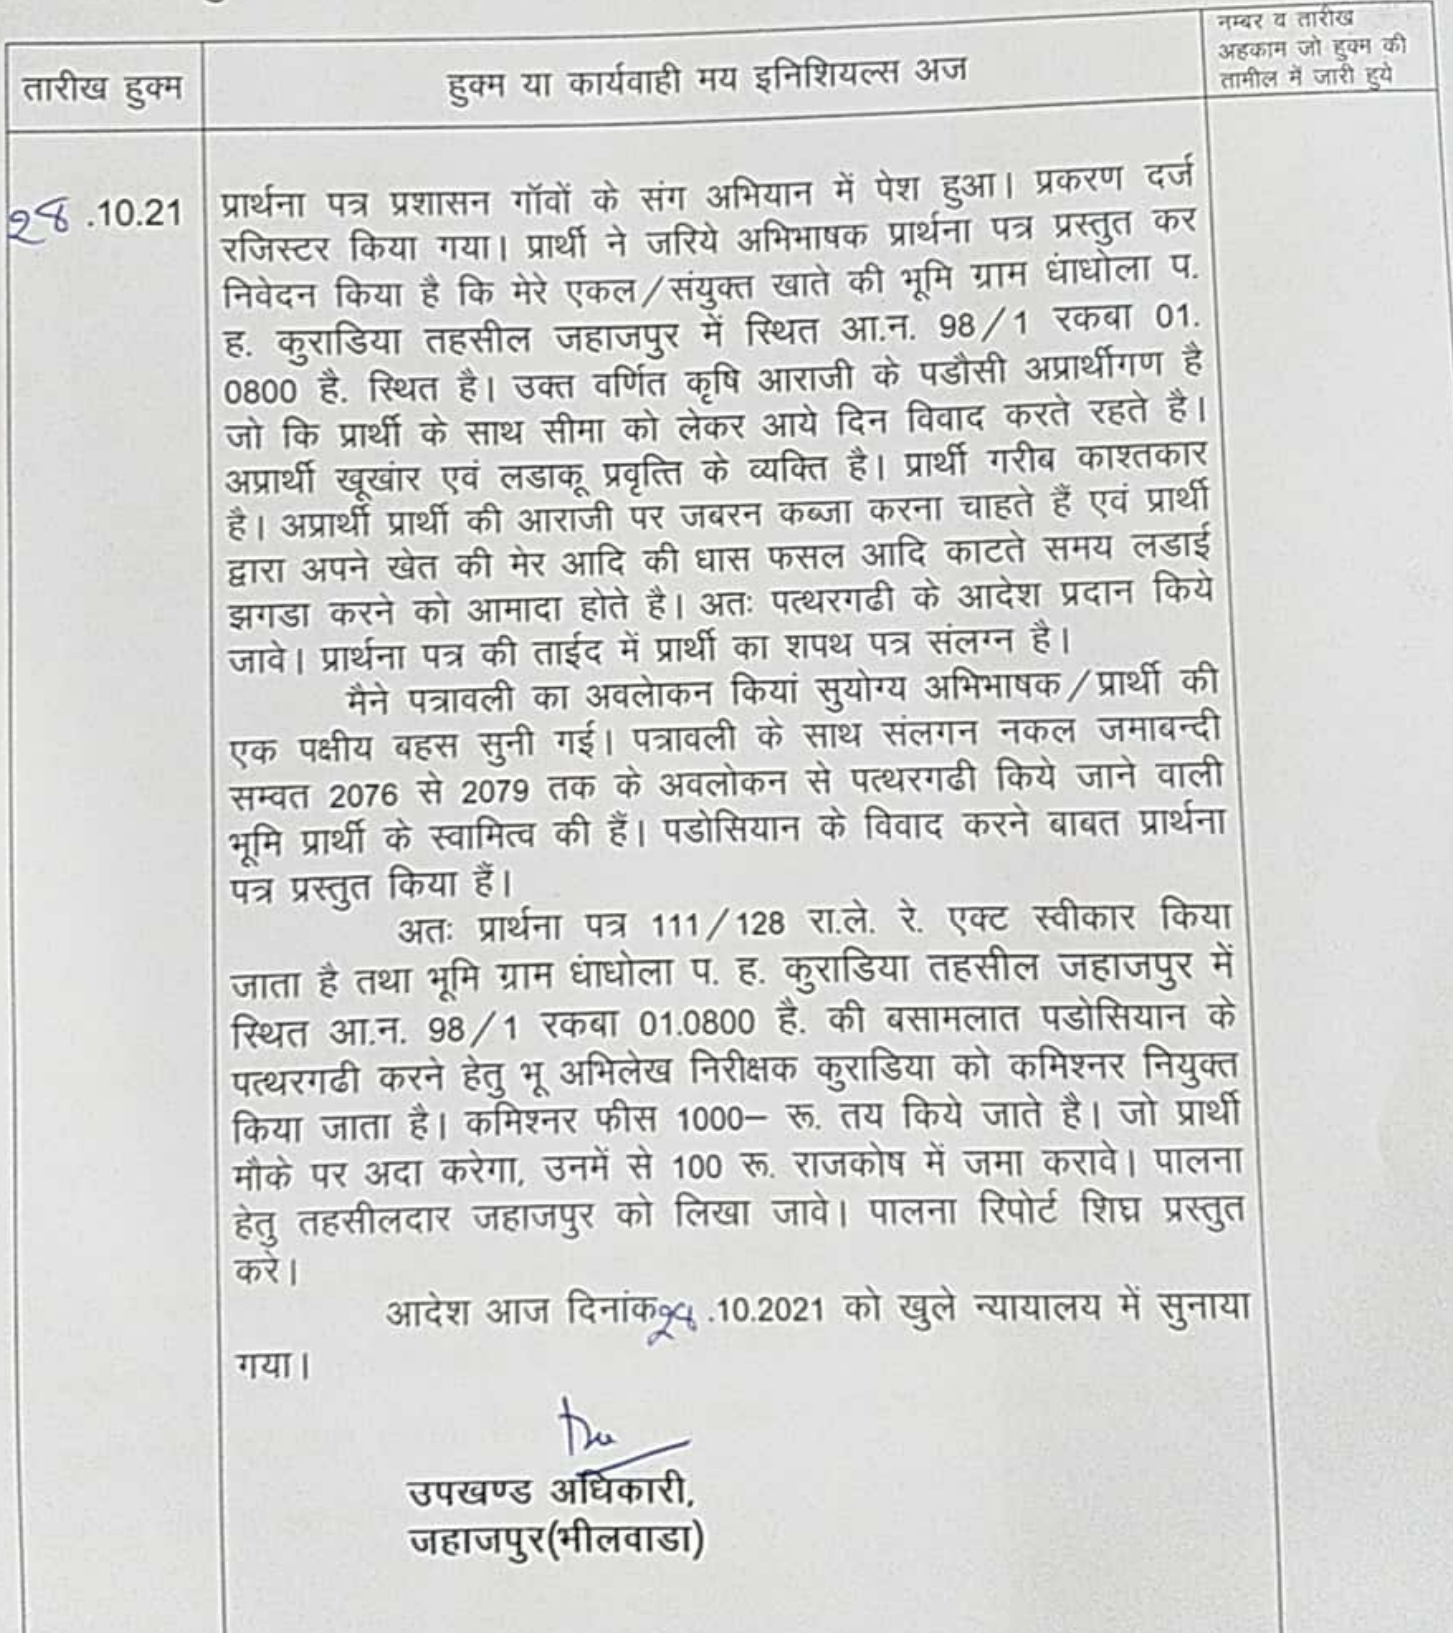 तारीख हुक्म
हुक्म या कार्यवाही मय इनिशियल्स अज
नम्बर व तारीख
अहकाम जो हुक्म की
तामील में जारी हुये
28.10.21
प्रार्थना पत्र प्रशासन गॉवों के संग अभियान में पेश हुआ। प्रकरण दर्ज
रजिस्टर किया गया। प्रार्थी ने जरिये अभिभाषक प्रार्थना पत्र प्रस्तुत कर
निवेदन किया है कि मेरे एकल/संयुक्त खाते की भूमि ग्राम धांधोला प.
ह. कुराडिया तहसील जहाजपुर में स्थित आ.न. 98/1 रकबा 01.
0800 है. स्थित है। उक्त वर्णित कृषि आराजी के पडौसी अप्रार्थीगण है
जो कि प्रार्थी के साथ सीमा को लेकर आये दिन विवाद करते रहते है।
अप्रार्थी खूखांर एवं लडाकू प्रवृत्ति के व्यक्ति है। प्रार्थी गरीब काश्तकार
है। अप्रार्थी प्रार्थी की आराजी पर जबरन कब्जा करना चाहते हैं एवं प्रार्थी
द्वारा अपने खेत की मेर आदि की धास फसल आदि काटते समय लडाई
झगडा करने को आमादा होते है। अतः पत्थरगढी के आदेश प्रदान किये
जावे। प्रार्थना पत्र की ताईद में प्रार्थी का शपथ पत्र संलग्न है।
मैने पत्रावली का अवलोकन कियां सुयोग्य अभिभाषक/प्रार्थी की
एक पक्षीय बहस सुनी गई। पत्रावली के साथ संलगन नकल जमाबन्दी
सम्वत 2076 से 2079 तक के अवलोकन से पत्थरगढी किये जाने वाली
भूमि प्रार्थी के स्वामित्व की हैं। पडोसियान के विवाद करने बाबत प्रार्थना
पत्र प्रस्तुत किया हैं।
अतः प्रार्थना पत्र 111/128 रा.ले. रे. एक्ट स्वीकार किया
जाता है तथा भूमि ग्राम धांधोला प. ह. कुराडिया तहसील जहाजपुर में
स्थित आ.न. 98/1 रकबा 01.0800 है. की बसामलात पडोसियान के
पत्थरगढी करने हेतु भू अभिलेख निरीक्षक कुराडिया को कमिश्नर नियुक्त
किया जाता है। कमिश्नर फीस 1000– रू. तय किये जाते है। जो प्रार्थी
मौके पर अदा करेगा, उनमें से 100 रू. राजकोष में जमा करावे। पालना
हेतु तहसीलदार जहाजपुर को लिखा जावे। पालना रिपोर्ट शिघ्र प्रस्तुत
करे।
आदेश आज दिनांक 28.10.2021 को खुले न्यायालय में सुनाया
गया।
उपखण्ड अधिकारी,
जहाजपुर(भीलवाडा)